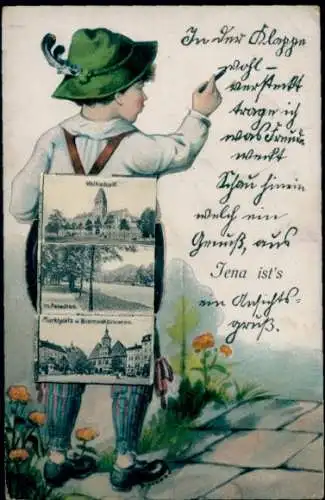 In der Klappe
wohl-
versteckt
trage ich
was Freude
weckt
Schau hinein
welch ein
Genuß, aus
Jena ist's
ein Ansichts-
gruß.
Volkshaus.
Im Paradies.
Marktplatz u. Bismarckbrunnen.